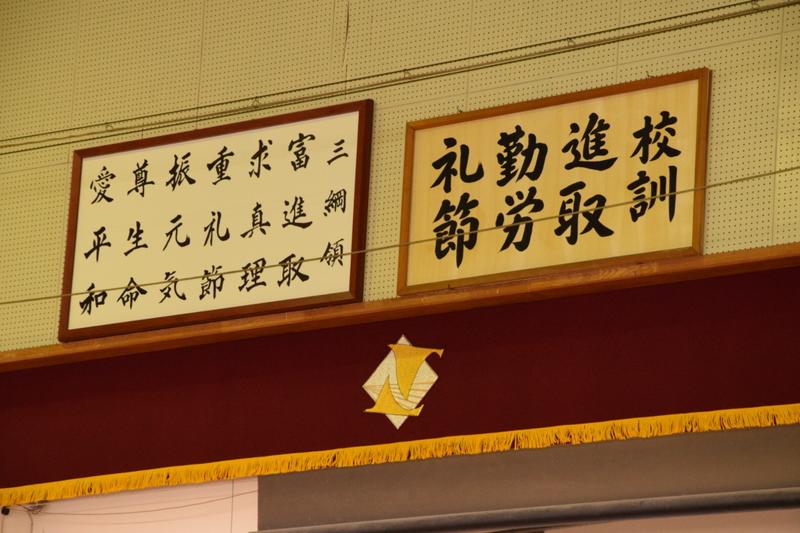 校訓
進取
勤労
礼節
三綱領
富進取
求真理
重礼節
振元気
尊生命
愛平和
N